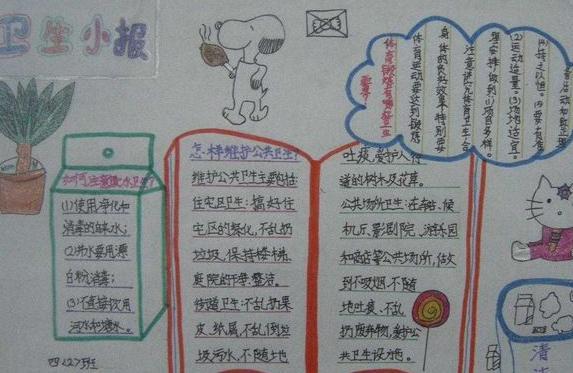 卫生小报
如何注意饮水卫生?
(1)使用净化和
消毒的自来水;
(2)井水要用漂
白粉消毒;
(3)不直接饮用
河水和塘水。
四、(2)班
怎样维护公共卫生?
维护公共卫生主要包括:
住宅区卫生:搞好住
宅区的绿化,不乱扔
垃圾,保持楼梯、
庭院的干净、整洁。
街道卫生:不乱扔果
皮、纸屑,不乱倒垃
圾污水,不随地
吐痰,爱护人行
道的树木及花草。
公共场所卫生:在车站、候
机厅、影剧院、游乐园
和商店等公共场所,做
到不吸烟,不随
地吐痰,不乱
扔废弃物,爱护公
共卫生设施。
体育运动要达到锻炼
身体的良好效果,特别要
注意讲究体育卫生,合
理安排,做到:(1)项目多样。
(2)运动适量。(3)场地适宜。
(4)持之以恒。
清洁